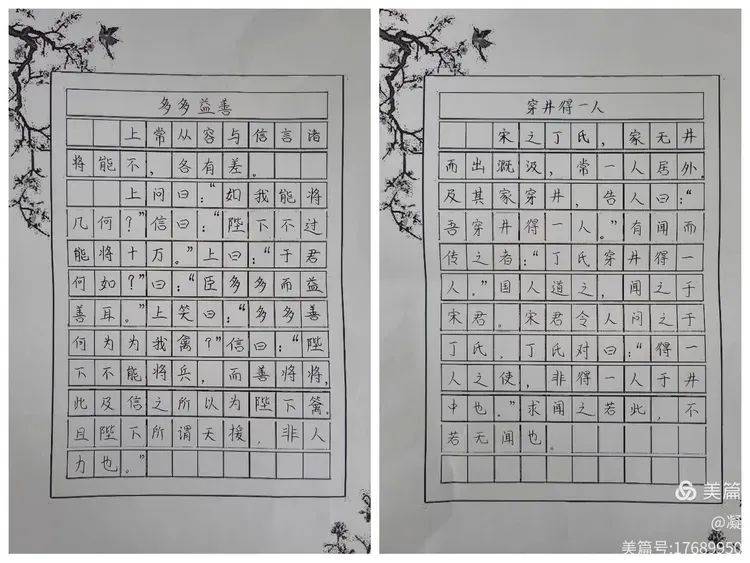 多多益善
上常从容与信言诸
将能不，各有差。
上问曰：“如我能将
几何？”信曰：“陛下不过
能将十万。”上曰：“于君
何如？”曰：“臣多多而益
善耳。”上笑曰：“多多益善
何为为我禽？”信曰：“陛
下不能将兵，而善将将，
此及信之所以为陛下禽。
且陛下所谓天授，非人
力也。”
穿井得一人
宋之丁氏，家无井
而出溉汲，常一人居外。
及其家穿井，告人曰：“
吾穿井得一人。”有闻而
传之者：“丁氏穿井得一
人。”国人道之，闻之于
宋君。宋君令人问之于
丁氏，丁氏对曰：“得一
人之使，非得一人于井
中也。”求闻之若此，不
若无闻也。
美篇
@凝
美篇号:17689950